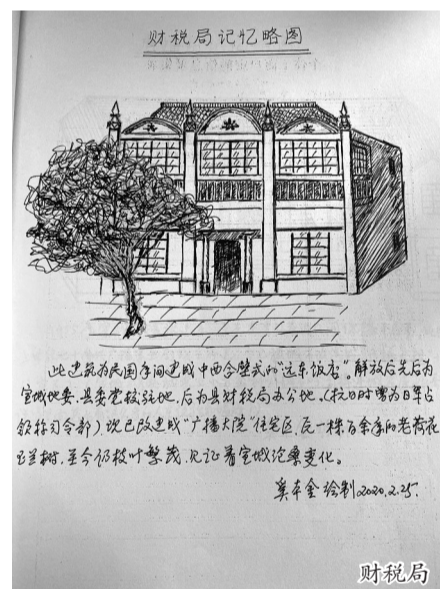 财税局记忆略图
此建筑为民国年间建成中西合璧式的“远东饭店”。解放后先后为
宣城地委、县委党校驻地,后为县财税局办公地。(抗日时曾为日军占
领军司令部),现已改建成“广播大院”住宅区,瓦一株百余年的老荷花
玉兰树,至今仍枝叶繁茂,见证着宣城沧桑变化。
奚本金绘制2020.2.25.
财税局